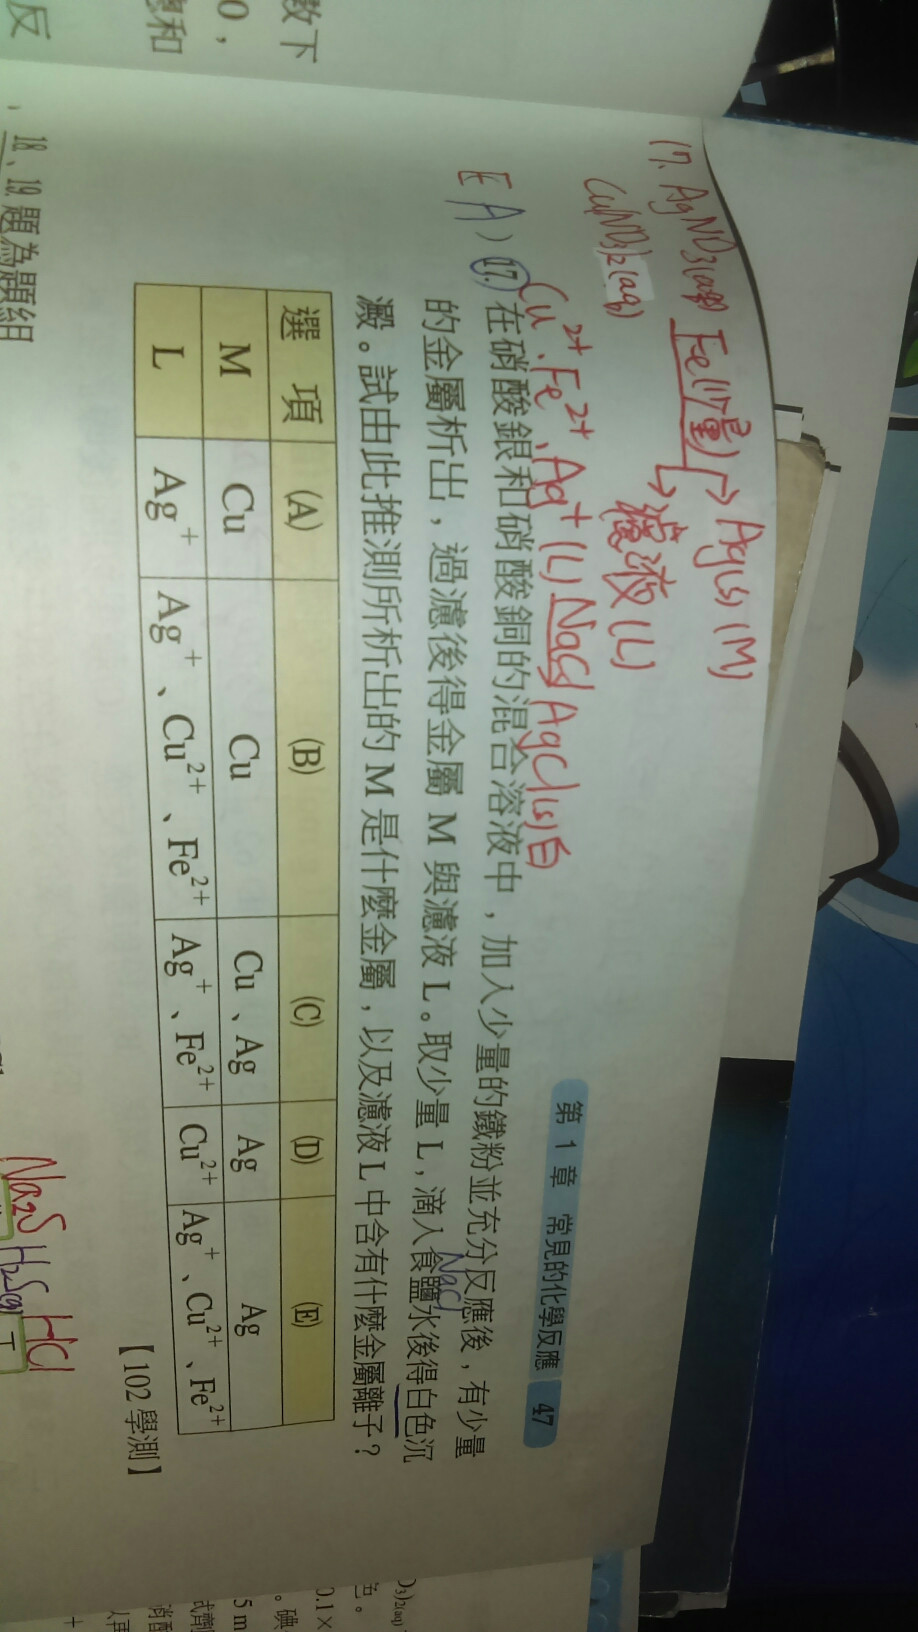 數下
0，
和
反
第 1 章 常見的化學反應 47
17. AgNO3(aq) Fe(少量) → Ag(s) (M)
Cu(NO3)2(aq) → 濾液(L)
Cu²⁺、Fe²⁺、Ag⁺(L) NaCl AgCl(s)白
E A ) 17. 在硝酸銀和硝酸銅的混合溶液中，加入少量的鐵粉並充分反應後，有少量
的金屬析出，過濾後得金屬 M 與濾液 L。取少量 L，滴入食鹽水後得白色沉
NaCl
澱。試由此推測所析出的 M 是什麼金屬，以及濾液 L 中含有什麼金屬離子？
選項 (A) (B) (C) (D) (E)
M Cu Cu Cu、Ag Ag Ag
L Ag⁺ Ag⁺、Cu²⁺、Fe²⁺ Ag⁺、Fe²⁺ Cu²⁺ Ag⁺、Cu²⁺、Fe²⁺
【102 學測】
、18、19. 題為題組
Na2S H2S(g) HCl
O3)2(aq)
色。
0.1 ×
。碘
5 m